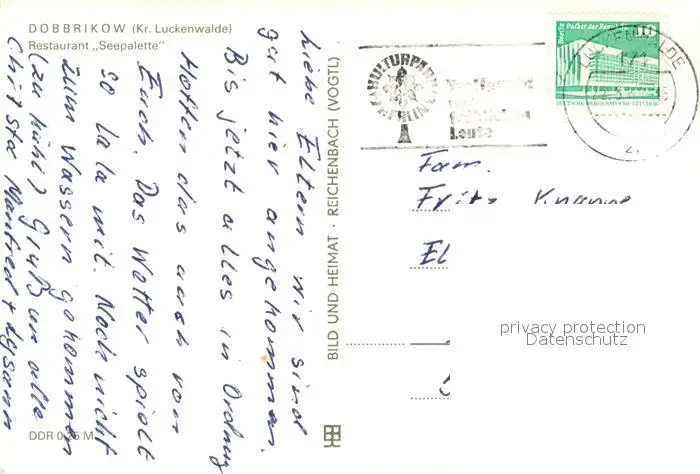 DOBBRIKOW (Kr. Luckenwalde)
Restaurant „Seepalette"
Liebe Eltern wir sind
gut hier angekommen.
Bis jetzt alles in Ordnung
Hoffen das auch von
Euch. Das Wetter spielt
so la la mit. Noch nicht
zum Wassern gekommen
(zu kühl) Gruß an alle
Christa Manfred +
DDR 0,25 M
BILD UND HEIMAT · REICHENBACH (VOGTL)
KULTURPARK
BERLIN
Treffpunkt
fröhlicher
Leute
Palast der Republik
10
DEUTSCHE DEMOKRATISCHE REPUBLIK
LUCKENWALDE
Fam.
Fritz
El
privacy protection
Datenschutz